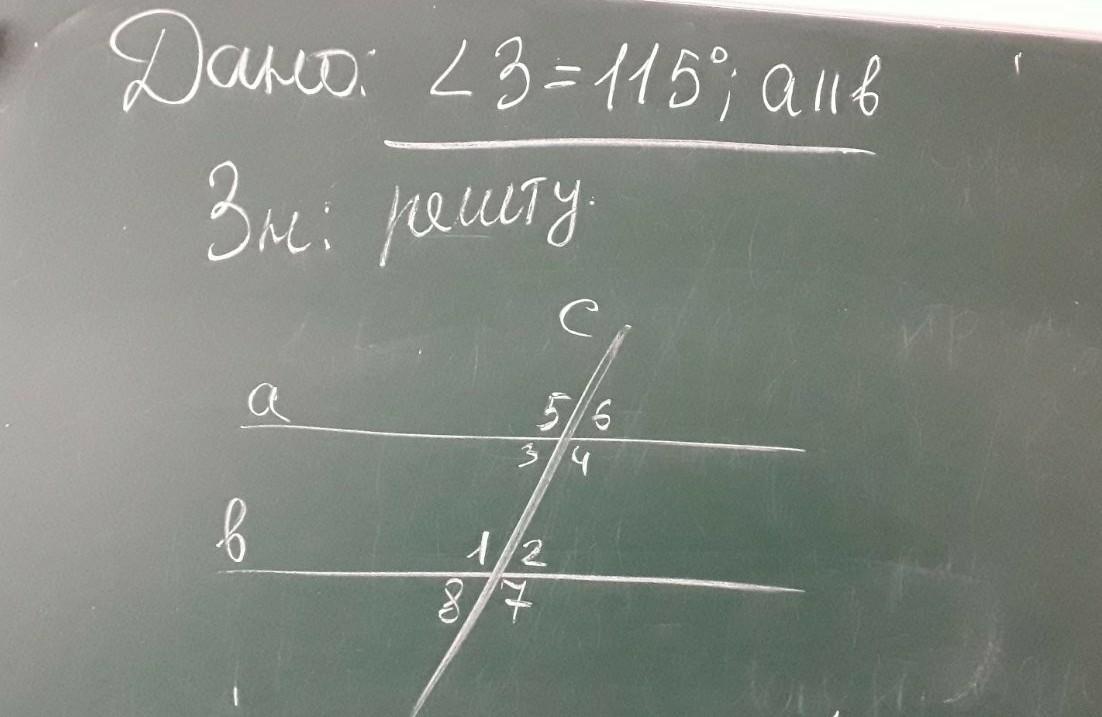 Дано: ∠3=115°; а॥в
Зн: решту.
с
а
5 6
3 4
в
1 2
8 7